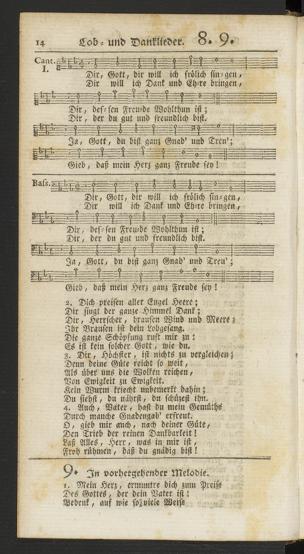 14 Lob- und Danklieder. 8. 9.
Cant. I.
Dir, Gott, dir will ich frölich sin-gen,
Dir will ich Dank und Eh-re bringen,
Dir, des-sen Freu-de Wohlthun ist;
Dir, der du gut und freundlich bist.
Ja, Gott, du bist ganz Gnad' und Treu';
Gieb, daß mein Herz ganz Freude sey!
Bass.
Dir, Gott, dir will ich frölich sin-gen,
Dir will ich Dank und Eh-re bringen,
Dir, des-sen Freu-de Wohlthun ist;
Dir, der du gut und freundlich bist.
Ja, Gott, du bist ganz Gnad' und Treu';
Gieb, daß mein Herz ganz Freude sey!
2. Dich preisen aller Engel Heere;
Dir singt der ganze Himmel Dank;
Dir, Herrscher, brausen Wind und Meere;
Ihr Brausen ist dein Lobgesang.
Die ganze Schöpfung ruft mir zu:
Es ist kein solcher Gott, wie du.
3. Dir, Höchster, ist nichts zu vergleichen;
Denn deine Güte reicht so weit,
Als über uns die Wolken reichen,
Von Ewigkeit zu Ewigkeit.
Kein Wurm kriecht unbemerkt dahin;
Du siehst, du nährst, du schützest ihn.
4. Auch, Vater, hast du mein Gemüthe
Durch manche Gnadengab' erfreut.
O, gieb mir auch, nach deiner Güte,
Den Trieb der reinen Dankbarkeit!
Laß Alles, Herr, was in mir ist,
Froh rühmen, daß du gnädig bist!
9. In vorhergehender Melodie.
1. Mein Herz, ermuntre dich zum Preise
Des Gottes, der dein Vater ist!
Bedenk, auf wie so viele Weise